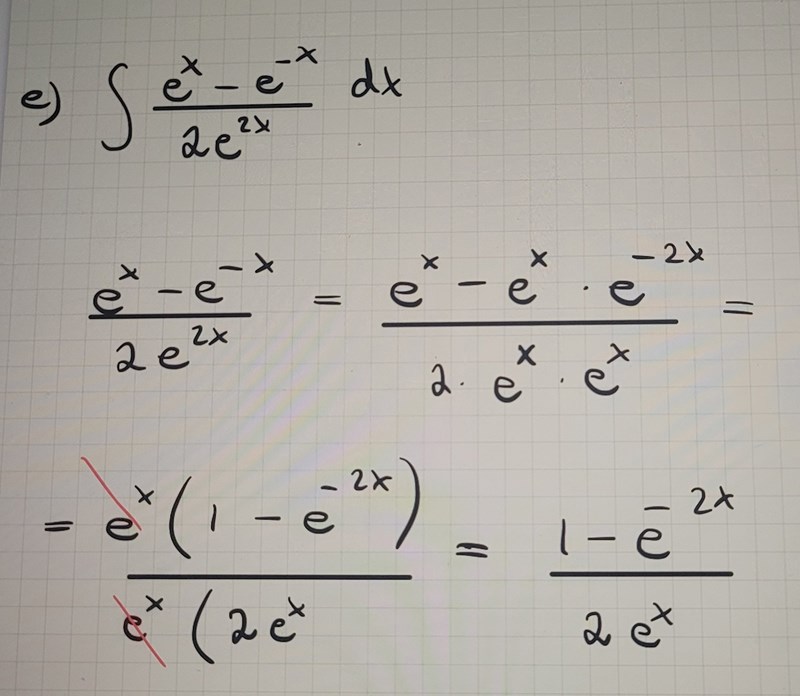 e) ∫ (e^x − e^{−x}) / (2e^{2x}) dx
(e^x − e^{−x}) / (2e^{2x}) = (e^x − e^x · e^{−2x}) / (2 · e^x · e^x) =
= e^x (1 − e^{−2x}) / e^x (2e^x = (1 − e^{−2x}) / (2e^x)